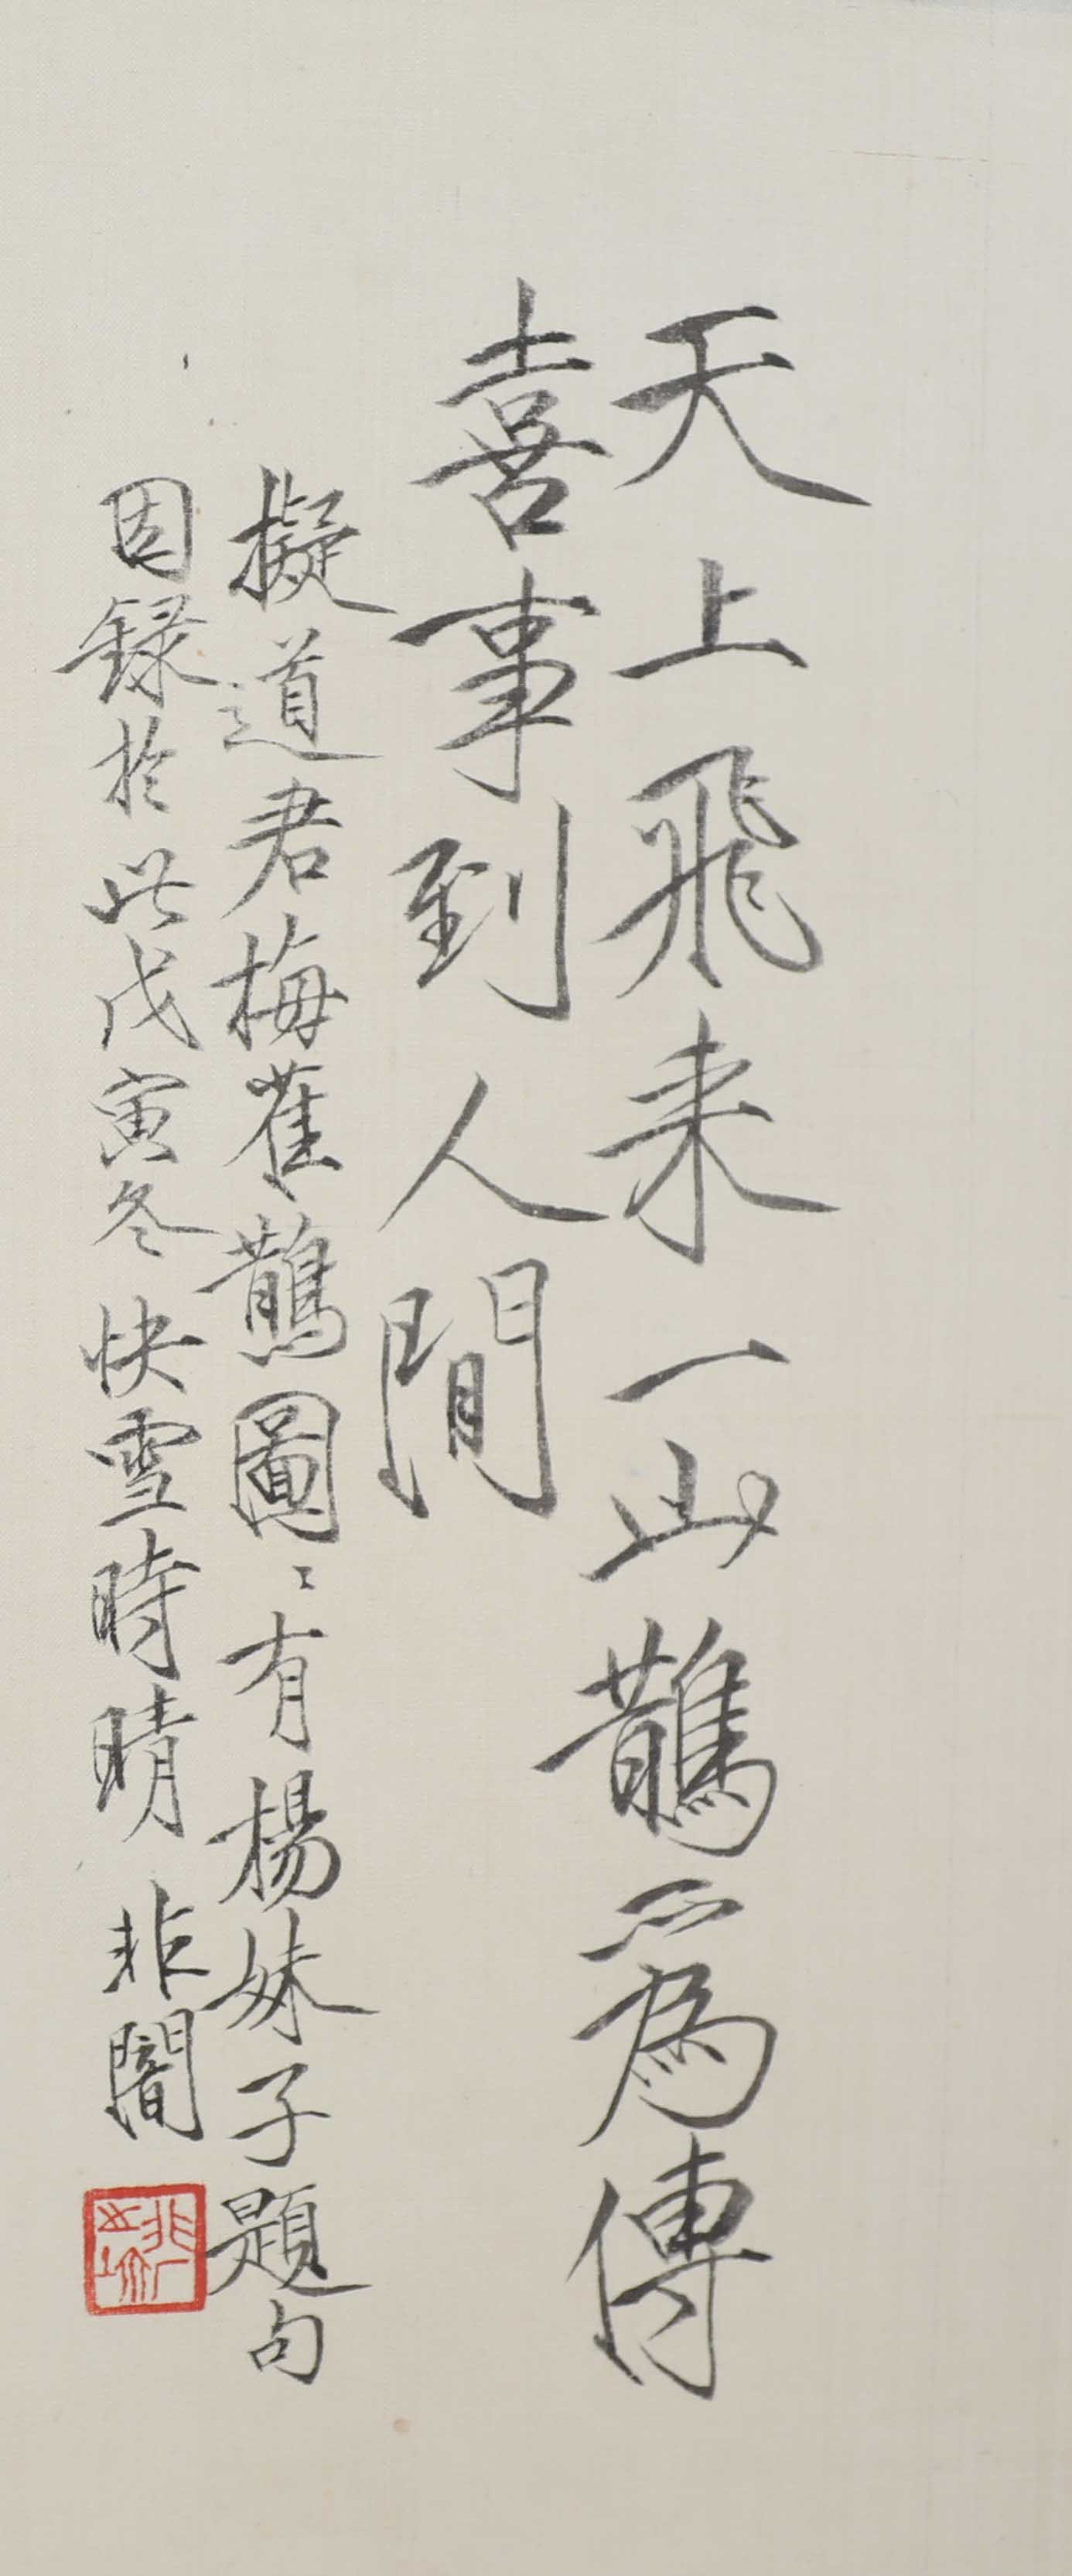 天上飛来一山鵲爲傳
喜事到人閒
擬道君梅萑鵲圖〻有楊妹子題句
因録於此戊寅冬快雪時晴 非闇